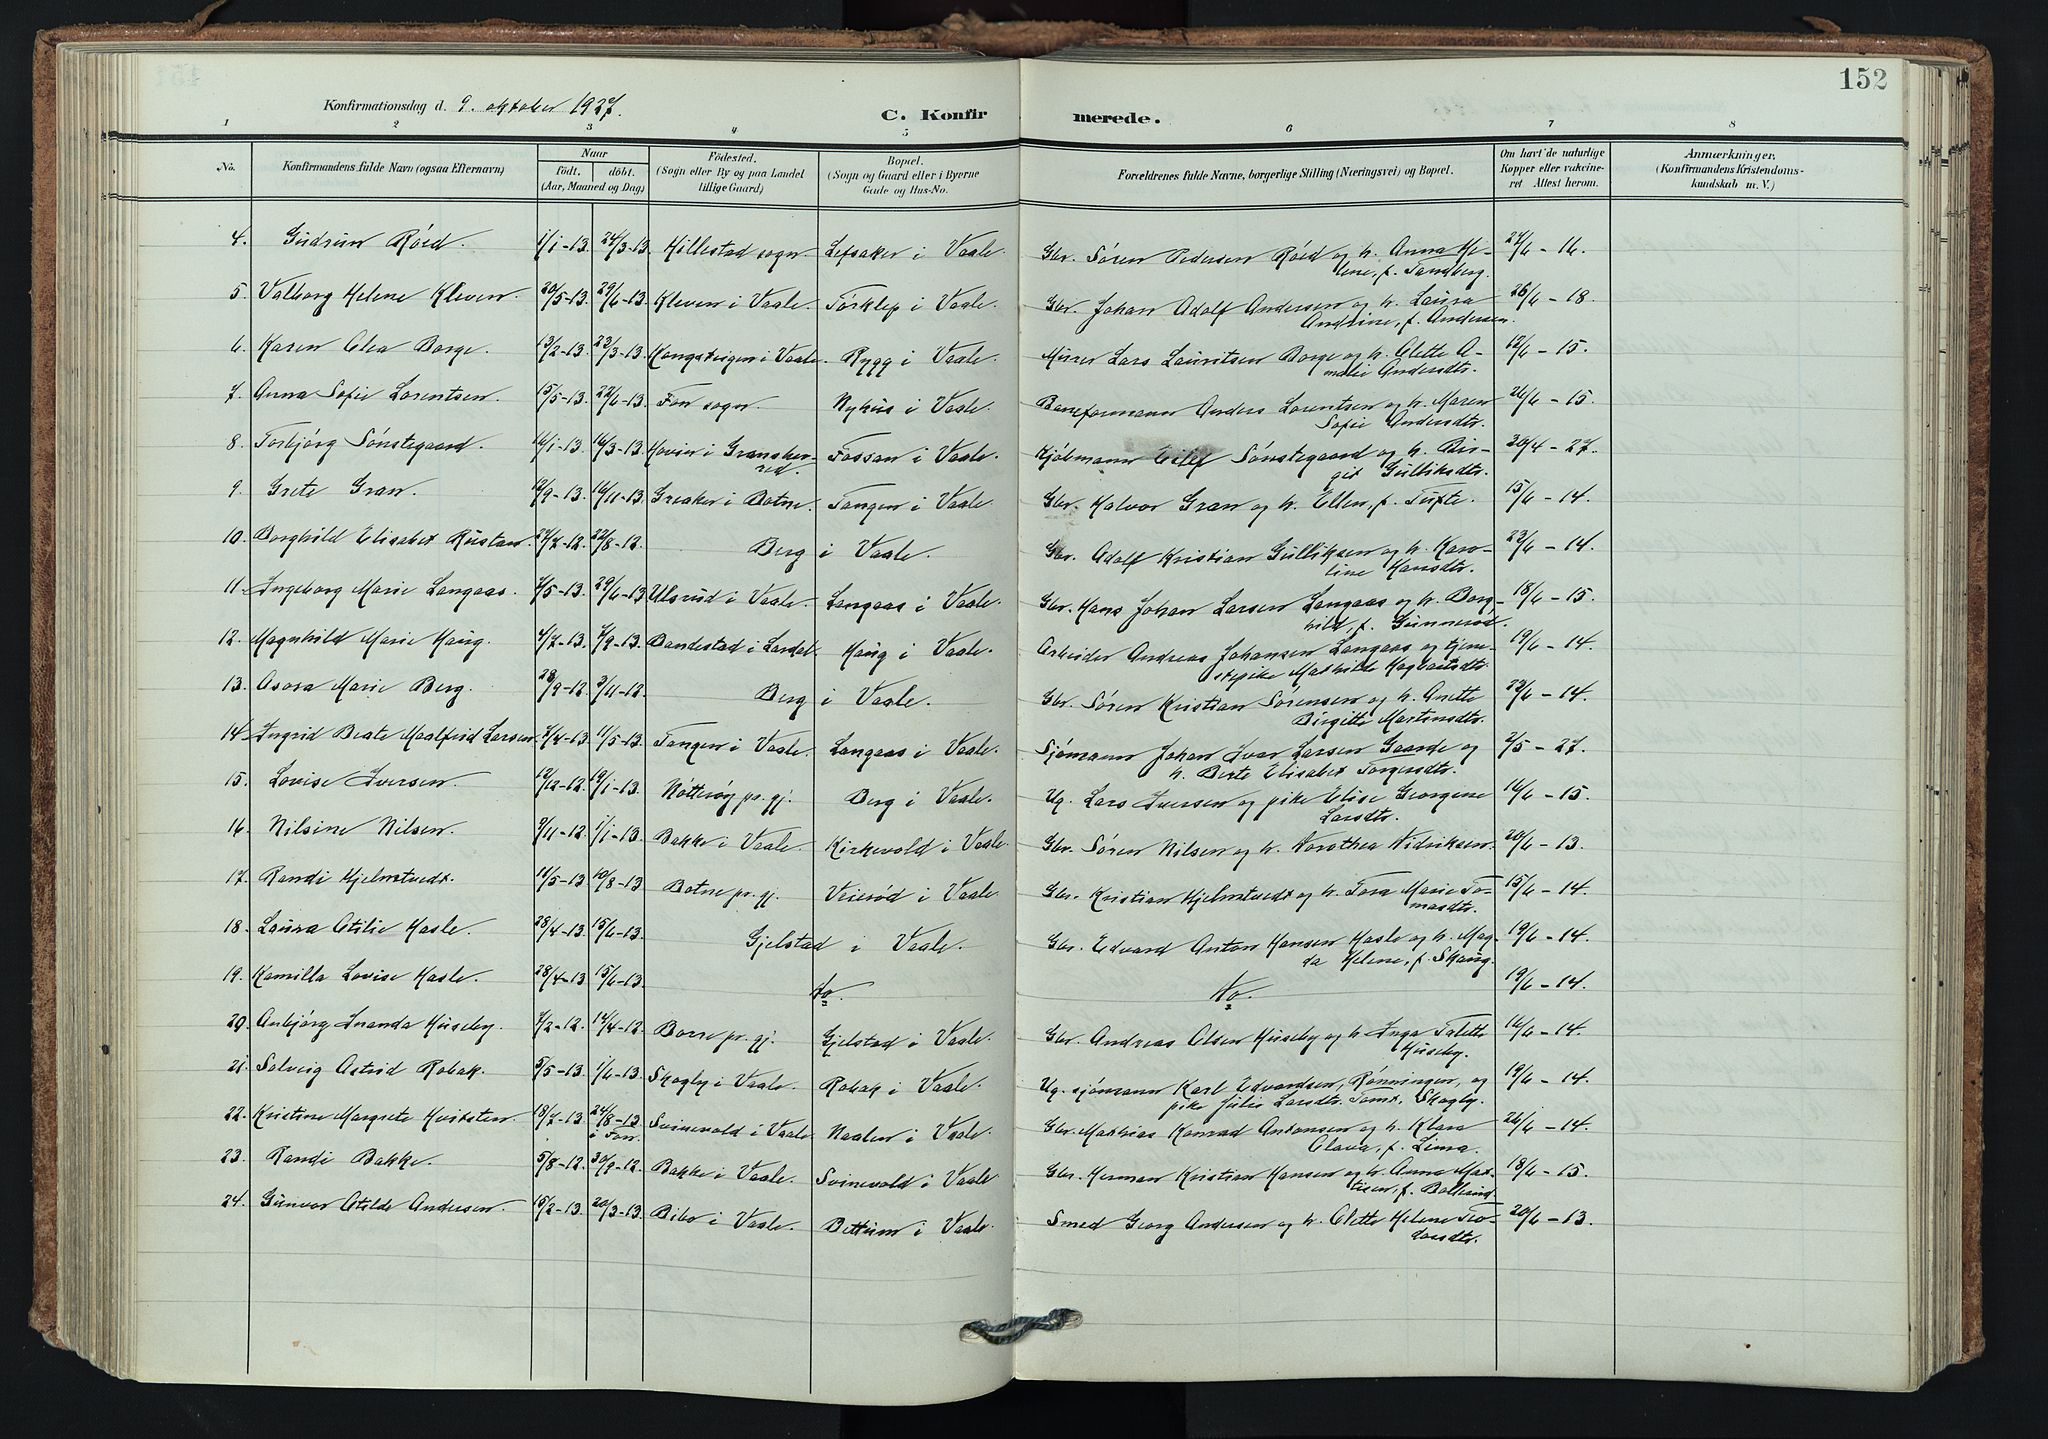 152
Konfirmationsdag d. 9. oktober 1927.
C. Konfir merede.
1 2 3 4 5 6 7 8
No. Konfirmandens fulde Navn (ogsaa Efternavn) Naar født. døbt. (Aar, Maaned og Dag) Fødested. (Sogn eller By og paa Landet tillige Gaard) Bopæl. (Sogn og Gaard eller i Byerne Gade og Hus-No. Forældrenes fulde Navne, borgerlige Stilling (Næringsvei) og Bopæl. Om havt de naturlige Kopper eller vakcineret Attest herom. Anmærkninger. (Konfirmandens Kristendomskundskab m. V.)
4. Gudrun Röed. 1/1-13. 24/3-13. Hillestad sogn. Lefsaker i Vaale. Gbr. Sören Pedersen Röed og h. Anna He- 27/6 - 16.
lene, f. Sandberg.
5. Valborg Helene Kleven. 20/5-13. 29/6-13. Kleven i Vaale. Torklep i Vaale. Gbr. Johan Adolf Andersen og h. Laura 26/6 - 18.
Andrine, f. Andersen.
6. Karen Olea Borge. 13/2-13. 23/3-13. Kongsteigen i Vaale. Rygg i Vaale. Murer Lars Lauritsen Borge og h. Olette A- 12/6 - 15.
malie Andersdtr.
7. Anna Sofie Lorentsen. 15/5-13. 22/6-13. Fon sogn. Nyhus i Vaale. Baneformann Anders Lorentsen og h. Maren 26/6 - 15.
Sofie Andersdtr.
8. Torbjörg Sönstegaard. 16/1-13. 16/3-13. Hovin i Gransher- Fossan i Vaale. Kjöbmann Eilef Sönstegaard og h. Bir- 20/4 - 27.
red. git Gulliksdtr.
9. Grete Gran. 12/9-13. 16/11-13. Greaker i Botne. Tangen i Vaale. Gbr. Halvor Gran og h. Ellen, f. Tufte. 15/6 - 14.
10. Borghild Elisabet Rustan. 27/7-12. 22/8-12. Berg i Vaale. Gbr. Adolf Kristian Gulliksen og h. Karo- 23/6 - 14.
line Hansdtr.
11. Ingeborg Marie Langaas. 7/5-13. 29/6-13 Ulsrud i Vaale. Langaas i Vaale. Gbr. Hans Johan Larsen Langaas og h. Borg- 18/6 - 15.
hild, f. Gunneröd.
12. Magnhild Marie Haug. 4/7-13. 7/9-13. Bandestad i Lardal. Haug i Vaale. Arbeider Andreas Johansen Langaas og tjene- 19/6 - 14.
stepike Mathilde Hagbartsdtr.
13. Asora Marie Berg. 28/9-12. 3/11-12. Berg i Vaale. Gbr. Sören Kristian Sörensen og h. Anette 22/6 - 14.
Birgitte Martinsdtr.
14. Ingrid Beate Maalfrid Larsen. 7/4-13. 11/5-13. Tangen i Vaale. Langaas i Vaale. Sjömann Johan Ivar Larsen Gaarde og 2/5 - 27.
h. Berte Elisabet Torgersdtr.
15. Lovise Iversen. 12/12-12. 19/1-13. Nötteröy pr. gj. Berg i Vaale. Ug. Lars Iversen og pike Elise Georgine 16/6 - 15.
Larsdtr.
16. Nilsine Nilsen. 9/11-12. 1/1-13. Bakke i Vaale. Kirkevold i Vaale. Gbr. Sören Nilsen og h. Dorothea Didriksen. 20/6 - 13.
17. Randi Hjelmtvedt. 11/5-13. 10/8-13. Botne pr. gj. Veieröd i Vaale. Gbr. Kristian Hjelmtvedt og h. Tora Marie To- 15/6 - 14.
masdtr.
18. Laura Otilie Hasle. 28/4-13. 15/6-13. Gjelstad i Vaale. Gbr. Edvard Anton Hansen Hasle og h. Mag- 19/6 - 14.
da Helene, f. Skaug.
19. Kamilla Lovise Hasle. 28/4-13 15/6-13. Do. Do. 19/6 - 14.
20. Asbjörg Inanda Huseby. 7/2-12. 14/4-12. Borre pr. gj. Gjelstad i Vaale. Gbr. Andreas Olsen Huseby og h. Inga Talette 16/6 - 14.
Huseby.
21. Solveig Astrid Robak. 5/5-13. 1/6-13. Skogly i Vaale. Robak i Vaale. Ug. sjömann Karl Edvardsen, Rönningen, og 19/6 - 14.
pike Julie Larsdtr. Tomt, Skogly.
22. Kristine Margrete Hvitsten. 18/7-13. 24/8-13 Svinevold i Vaale. Naalen i Vaale. Gbr. Mathias Konrad Antonsen og h. Klara 26/6 - 14.
i Fon. Olava, f. Linna.
23. Randi Bakke. 5/8-12. 30/9-12. Bakke i Vaale. Svinevold i Vaale. Gbr. Herman Kristian Hansen og h. Anna Mat- 18/6 - 15.
24. Gunvor Otilde Andersen. 15/2-13. 20/3-13. Bibo i Vaale. Bettum i Vaale. Smed Georg Andersen og h. Olette Helene Teo- 20/6 - 13.
dorsdtr.